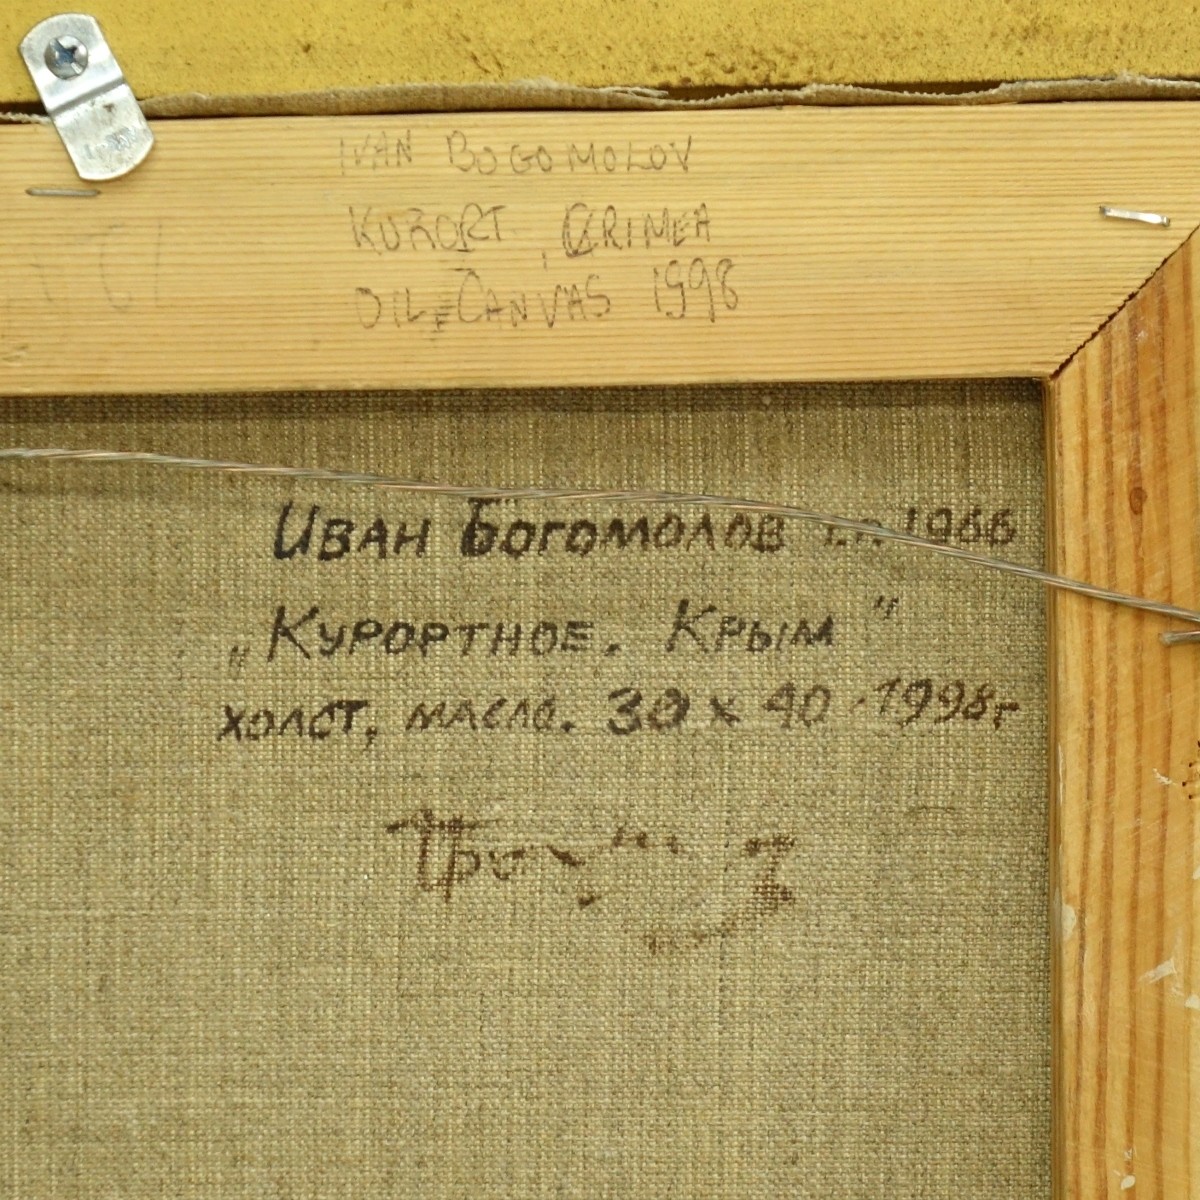 IVAN BOGOMOLOV
KURORT, CRIMEA
OIL CANVAS 1998
Иван Богомолов 1966
„Курортное. Крым"
холст, масло. 30 х 40. 1998г